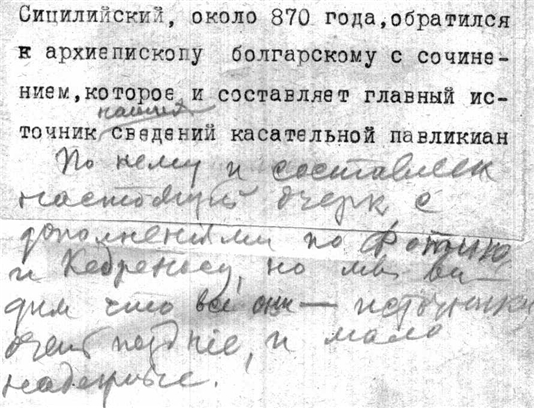 Сицилийский, около 870 года,обратился
к архиепископу болгарскому с сочине-
нием,которое и составляет главный ис-
наших
точник сведений касательной павликиан
По нему и составлен
настоящий очерк с
дополнениями по Фотию
и Кедреносу, но мы ви-
дим что все они — источники
очень поздніе, и мало
надежные.